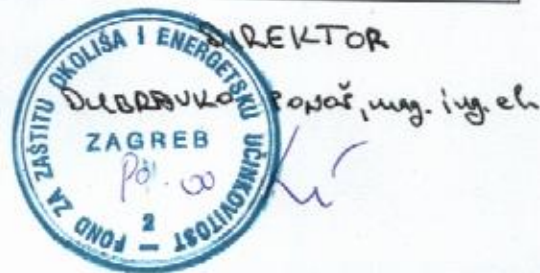 DIREKTOR
DUBRAVKO PONOŠ, mag. ing. el.
FOND ZA ZAŠTITU OKOLIŠA I ENERGETSKU UČINKOVITOST —
ZAGREB
2